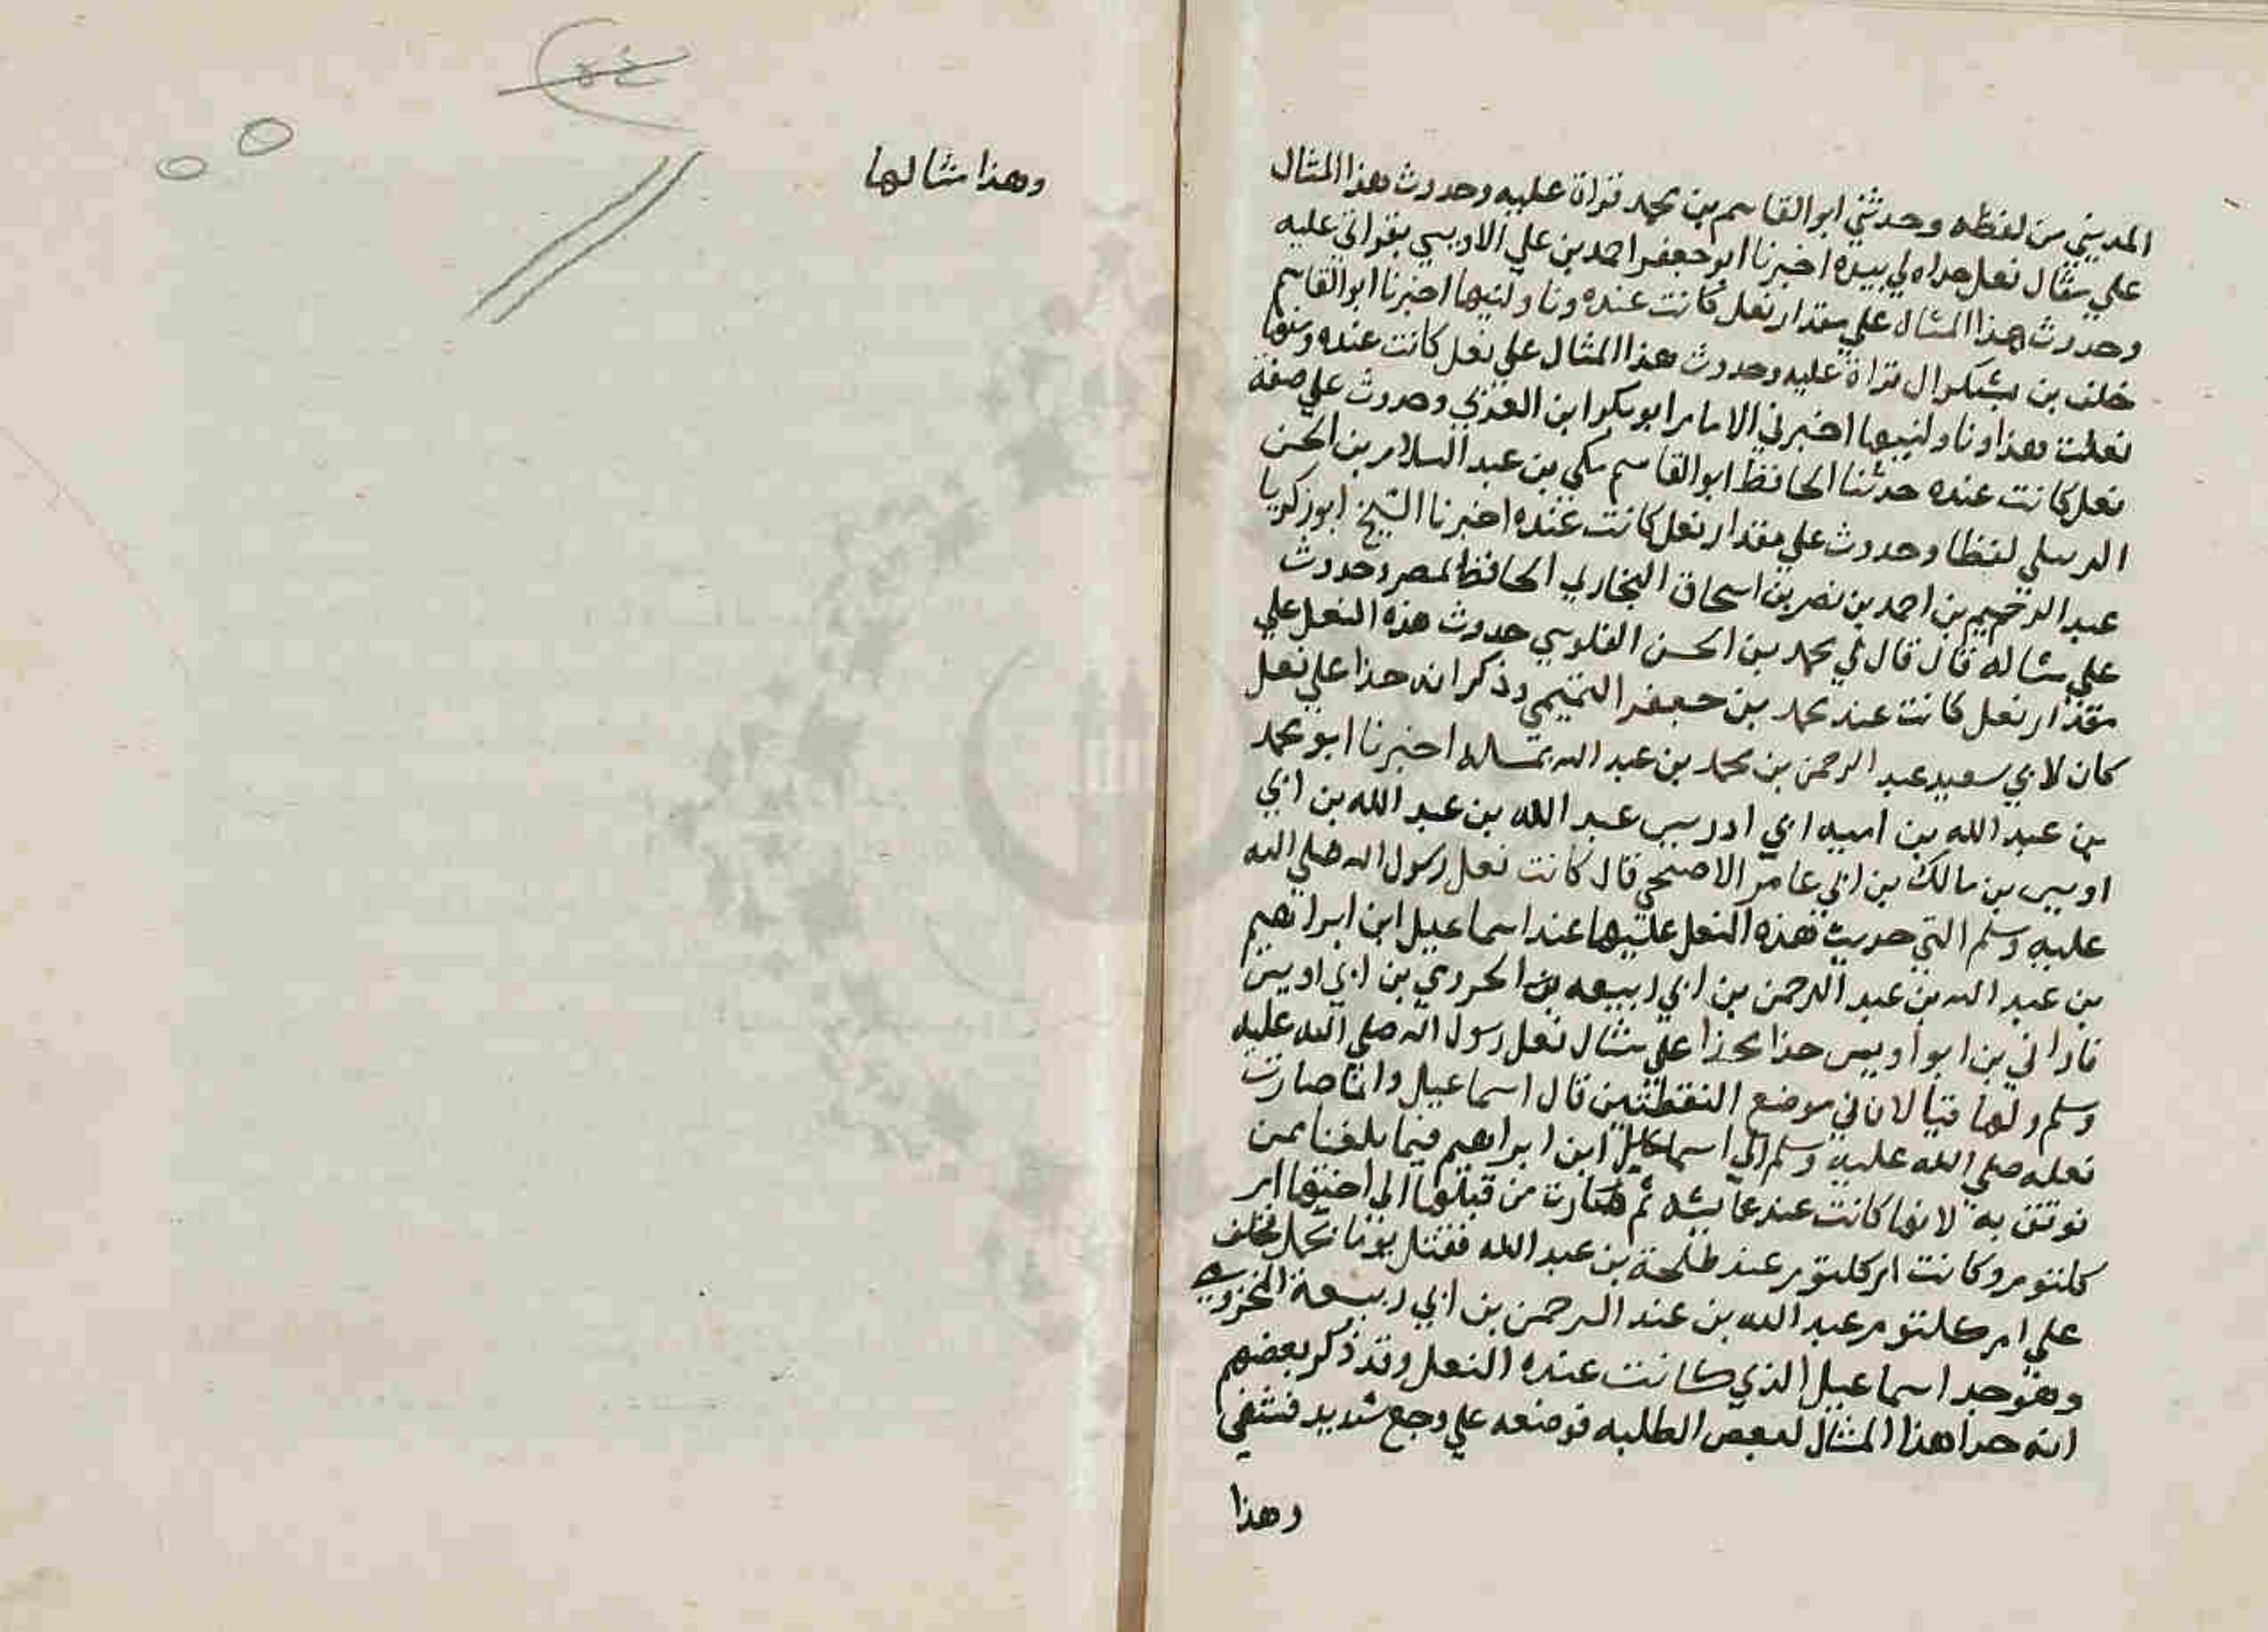 المديني من لفظه وحدثني ابو القاسم بن محمد قراة عليه وحدوت هذا المثال
علي مثال نعل حداه لي بيده اخبرنا ابو جعفر احمد بن علي الاوسي بقراتي عليه
وحدوت هذا المثال علي مقدار نعل كانت عنده وناولنيها اخبرنا ابو القاسم
خلف بن بشكوال قراة عليه وحدوت هذا المثال علي نعل كانت عنده ومنها
نعلت هذا وناولنيها اخبرني الامام ابو بكر ابن العربي وحدوت علي صفة
نعل كانت عنده حدثنا الحافظ ابو القاسم مكي بن عبد السلام بن الحسن
الرميلي لفظا وحدوت علي مقدار نعل كانت عنده اخبرنا الشيخ ابو زكريا
عبد الرحيم بن احمد بن نصر بن اسحاق البخاري الحافظ بمصر وحدوت
علي مثاله قال قال لي محمد بن الحسن الفلوسي حدوت هذه النعل علي
مقدار نعل كانت عند محمد بن جعفر التميمي وذكر انه حذا علي نعل
كان لابي سعيد عبد الرحمن بن محمد بن عبد الله بمثاله اخبرنا ابو محمد
بن عبد الله بن ابي ادريس عبد الله بن عبد الله بن ابي
اويس بن مالك بن ابي عامر الاصبحي قال كانت نعل رسول الله صلي الله
عليه وسلم التي حديث هذه النعل عليها عند اسماعيل ابن ابراهيم
بن عبد الله بن عبد الرحمن بن ابي ربيعه بن ابي اويس
بن ابو اويس حذا علي مثال نعل رسول الله صلي الله عليه
وسلم ولها قبالان في موضع النقطتين قال اسماعيل وانما صارت
نعله صلي الله عليه وسلم الي اسماعيل ابن ابراهيم فيما بلغنا ممن
نوثق به لانها كانت عند عايشه ثم صارت من قبلها الي اختها ام
كلثوم وكانت ام كلثوم عند طلحة بن عبد الله فقتل يوم الجمل فخلف
علي ام كلثوم عبد الله بن عبد الرحمن بن ابي ربيعة المخزومي
وهو جد اسماعيل الذي كانت عنده النعل وقد ذكر بعضهم
انه حدا هذا المثال لبعض الطلبه فوضعه علي وجع شديد فشفي
وهذا
وهذا مثالها